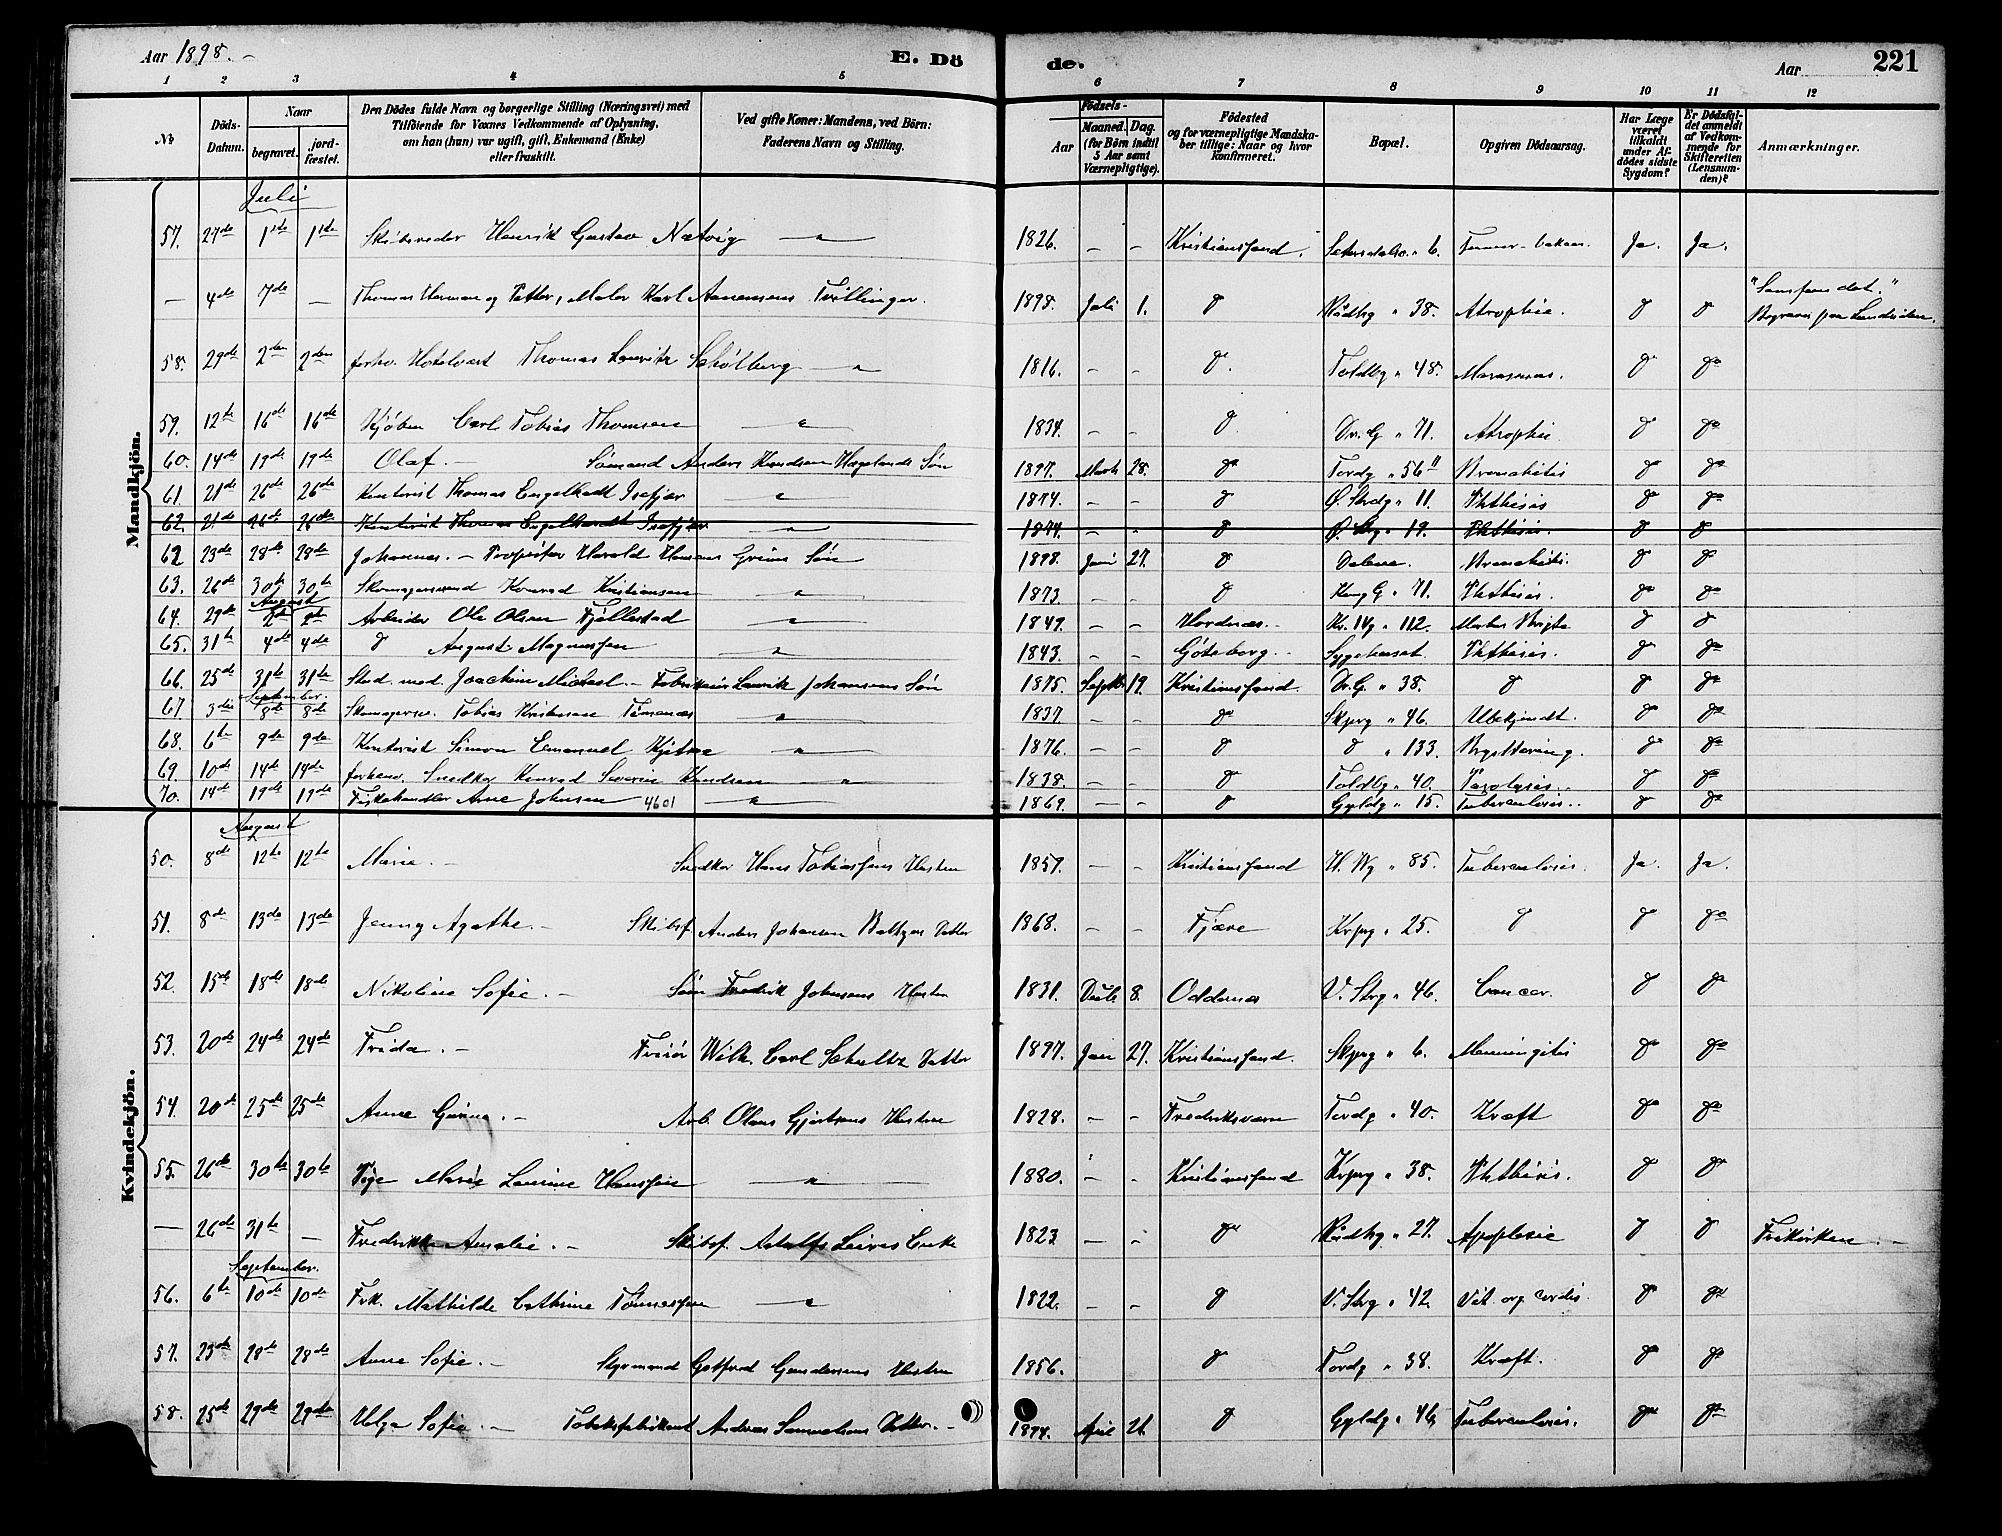 Aar 1898. E. Dö
de. Aar 221
1 2 3 4 5 6 7 8 9 10 11 12
№
Döds-Datum.
Naar begravet. jordfæstet.
Den Dödes fulde Navn og borgerlige Stilling (Næringsvei) med Tilföiende for Voxnes Vedkommende af Oplysning, om han (hun) var ugift, gift, Enkemand (Enke) eller fraskilt.
Ved gifte Koner: Mandens, ved Börn: Faderens Navn og Stilling.
Födsels- Aar Maaned. Dag. (for Börn indtil 5 Aar samt Værnepligtige).
Födested og for værnepligtige Mandskaber tillige: Naar og hvor konfirmeret.
Bopæl.
Opgiven Dödsaarsag.
Har Læge været tilkaldt under Afdödes sidste Sygdom?
Er Dödsfaldet anmeldt af Vedkommende for Skifteretten (Lensmanden)?
Anmærkninger.
Mandkjön.
Juli
57. 27de 1ste 1ste Skibsreder Henrik Gustav Natvig — 1826. – – Kristianssand. 6. Ja. Ja.
— 4de 7de — Thomas Herman og Petter, Maler Karl Aanensens Tvillinger. 1898. Juli 1. d 38. Atrophie. d d
58. 29de 2den 2den forhv. Hotelvert Thomas Lauritz — 1816. – – d. Toldbg " 48. Marasmus. d do
59. 12te 16de 16de Kjøbm Carl Tobias Thomsen — 1834. – – d. Dr. G " 71. Atrophie d do
60. 14de 19de 19de Olaf. – Sømand Anders Knudsen Hægelands Søn 1897. Marts 28. do Tordg " 56 Bronchitis d do
61 21de 26de 26de Kontorist Thomas Engelhardt Isefjær — 1874. – – d Ø. Strdg " 11. Phthisis d do
62 21de 26de 26de Kontorist Thomas Engelhardt Isefjær — 1874. – – d Ø. Strg " 19. Phthisis. d d
62 23de 28de 28de Johannes. – Harald Hansens Grims Søn 1898. Juni 27. d Dalene. Bronchitis. d d
63. 26de 30te 30te Skomagersvend Konrad Kristiansen — 1873 – – d Kong G " 71. Phthisis. do do
August
64. 29de 2den 2den Arbeider Ole Olsen Fjellestad — 1849. – – " 112. Morbus Brigtii d d
65. 31te 4de 4de d August Magnussen — 1843. – – Göteborg. – Sygehuset. Phthisis. d do
66. 25de 31te 31te Stud. med. Joachim Michael. – Johansens Søn 1875. Septbr 19. Kristianssand. Dr. G. " 38. d d do
September.
67 3die 8de 8de Tobias Kristensen — 1837 – – do Skprg " 46. Ubekjendt. d do
68. 6te 9de 9de Kontorist Simon Emanuel — 1876. – – d d " 133. d do
69 10de 14de 14de forhenv. Snedker Konrad Severin Knudsen — 1838. – – d Toldbg " 40. d do
70. 14de 19de 19de Fiskehandler Arne Johnsen 4601 — 1869. – – d Gyldg " 15. Tuberculosis. d do
Kvindekjön.
August
50. 8de 12te 12te Marie. – Snedker Hans Tobiassens Hustru 1857. – – Kristianssand " 85. Tuberculosis. Ja. Ja.
51. 8de 13de 13de Jenny Agathe. – Skibsf. Anders Johansen Datter 1868. – – Fjære 25. d d do
52. 15de 18de 18de Nikoline Sofie. – Søm Fredrik Johnsens Hustru 1831. 8. Oddernæs V. Strg " 46. Cancer. d do
53. 20de 24de 24de Frida. – Frisör Wilh. Carl Schultz Datter 1897. Jan 27. Kristianssand. Skprg " 6. Menningitis do do
54. 20de 25de 25de Anne – Arb. Olaus Gjertsens Hustru 1828. – – Fredriksværn Tordg " 40. Kræft do do
55. 26de 30te 30te Pige Marie Laurine Hanssen — 1880. – – Kristianssand " 38. Phthisis. d do
— 26de 31te — Fredrikke Amalie. – Skibsf. Enke 1823 – – do " 27. Apoplexie d d Frikirken. –
September.
56. 6te 10de 10de Frk. Mathilde Cathrine Tönnessen — 1822. – – d V. Strg " 42. Vit. org cordis. do do
57. 23de 28de 28de Anne Sofie. – Styrmand Gotfred Gundersens Hustru 1856. d Tordg " 38. Kræft. do do
58. 25de 29de 29de Helga Sofie – Tobaksfabrikant Andreas Samuelsens Datter. – 1894. April 21. d Gyldg " 46. Tuberculosis. do do